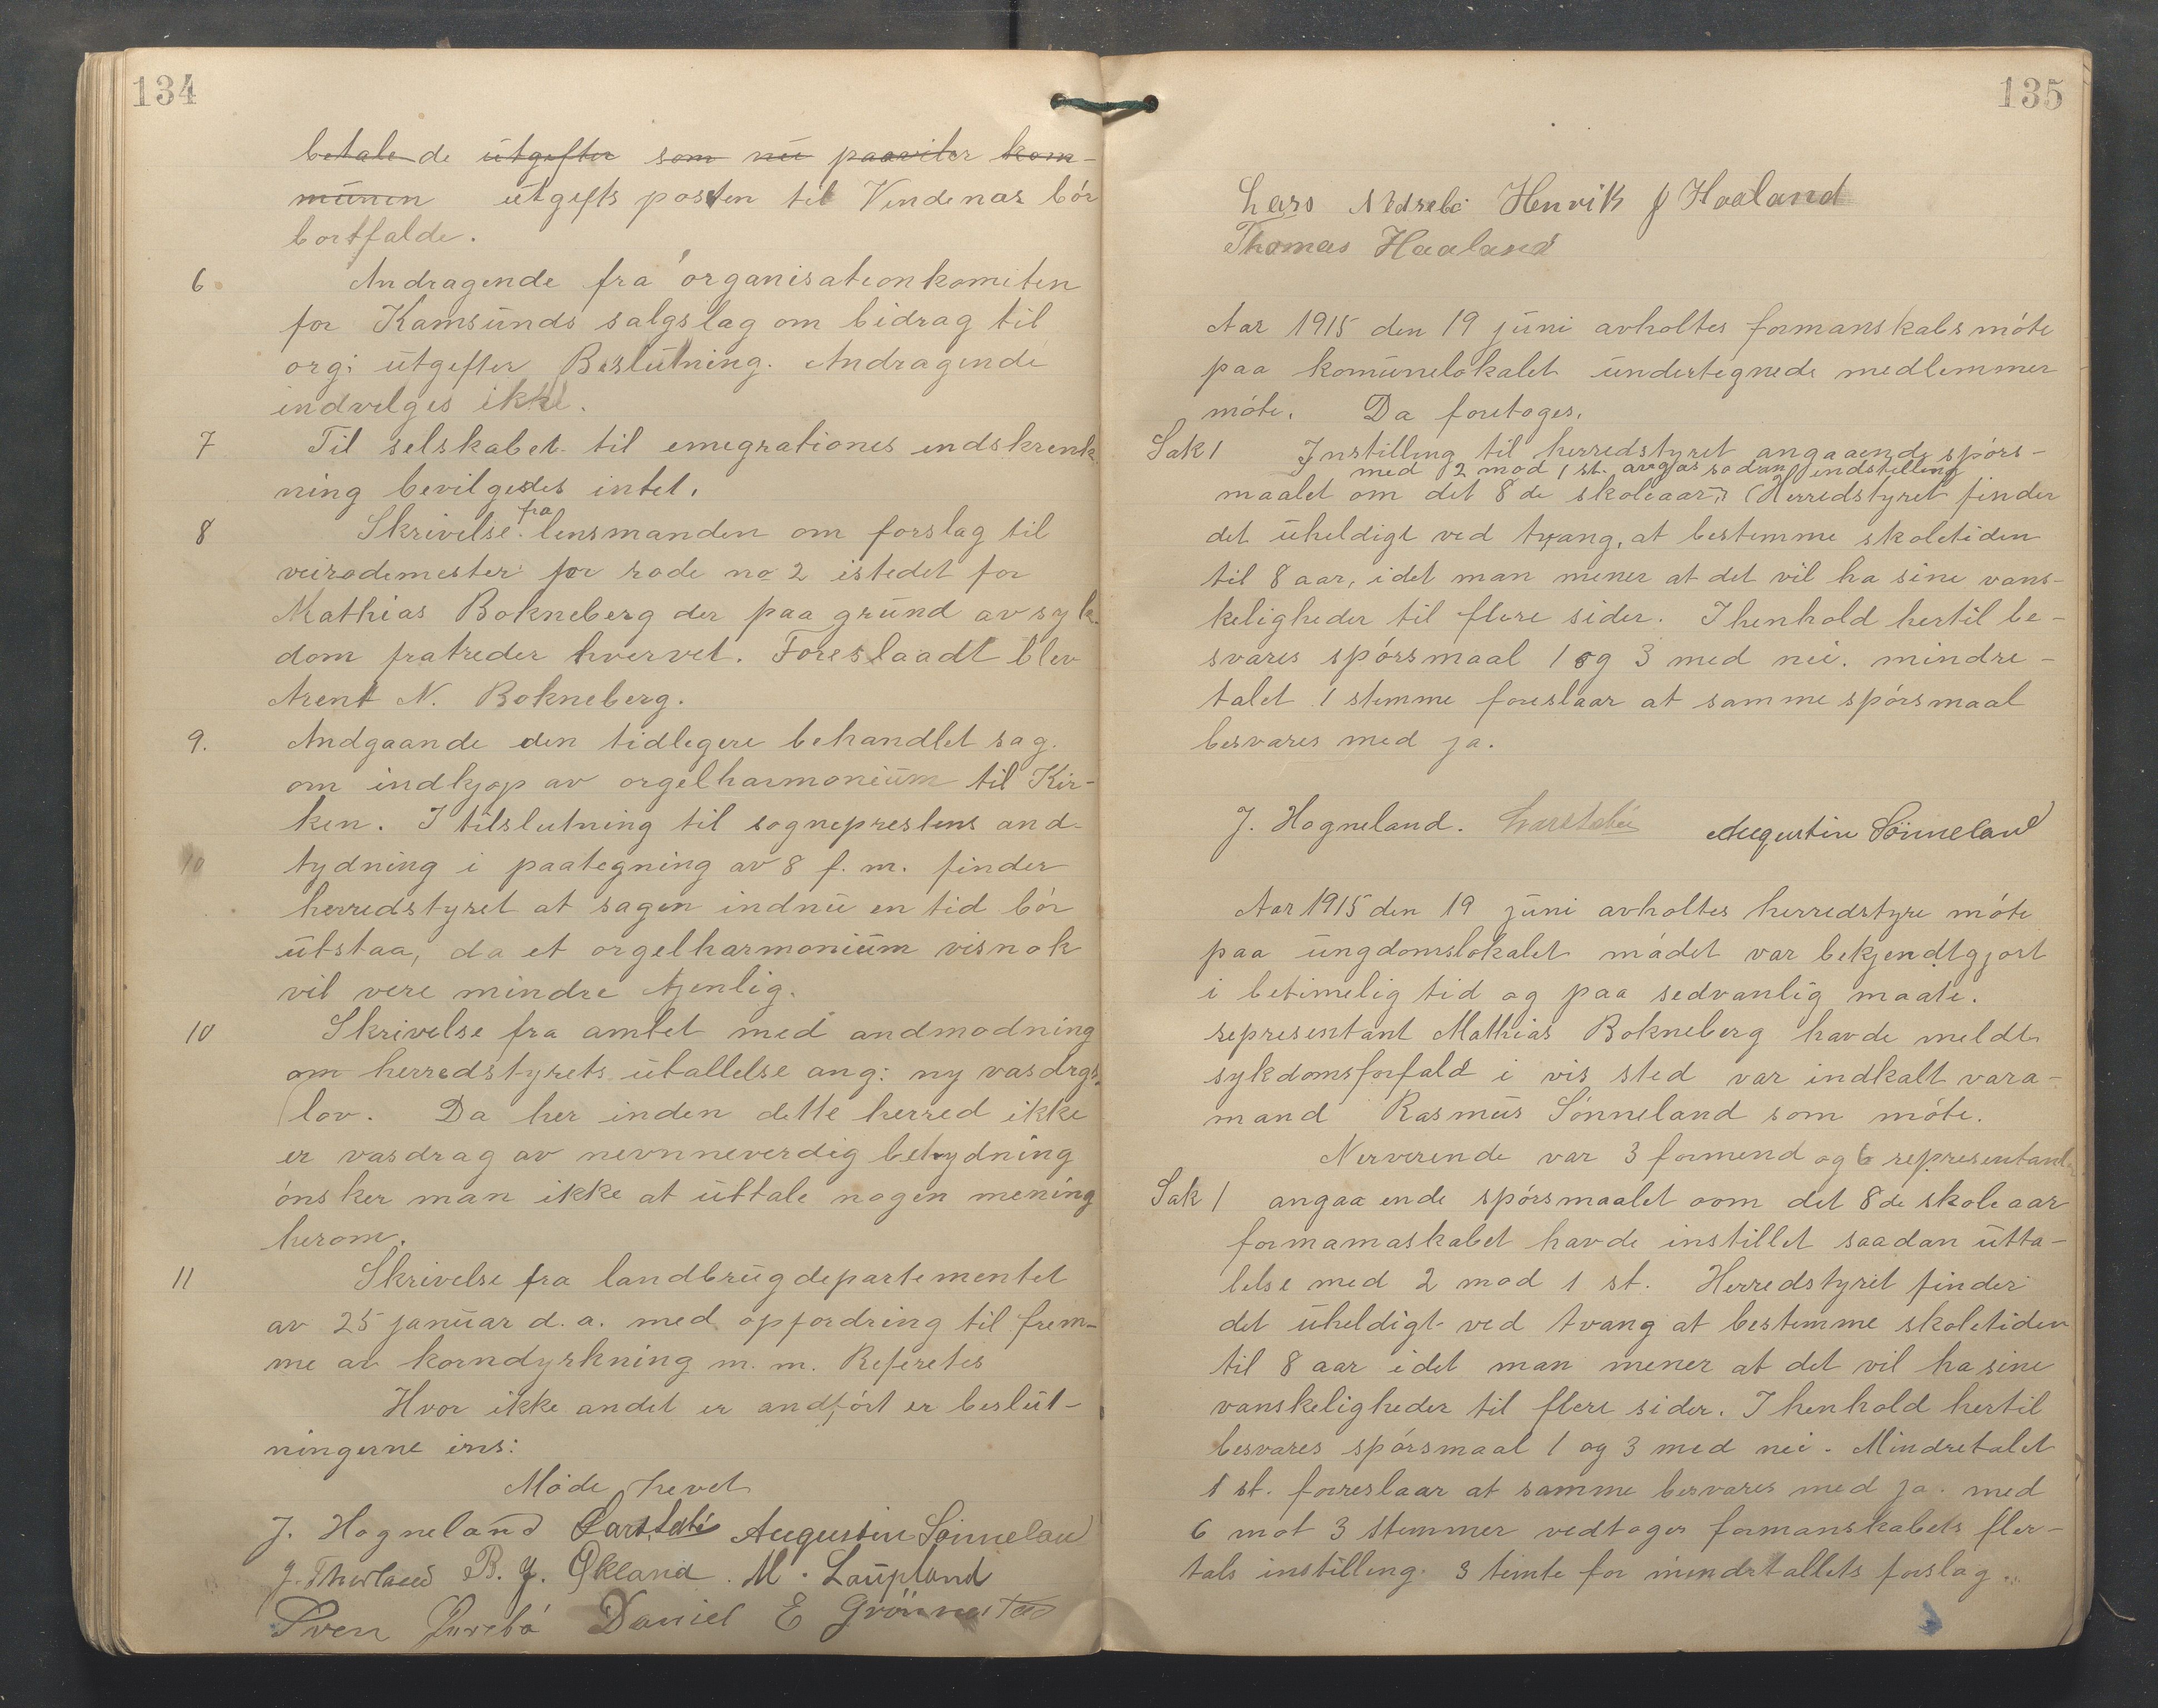 134
betalende utgifter som nu paaviler kom-
munen utgifts posten til Vindenes bór
bortfalde.
6. Andragende fra organisationkomiten
for Kamsunds salgslag om bidrag til
org: utgifter Beslutning. Andragende
indvilges ikke.
7 Til selskabet til emigrationes indskrenk-
ning bevilgedes intet.
8 Skrivelse fra lensmanden om forslag til
veirodemester for rode no 2 istedet for
Mathias Bokneberg der paa grund av syk-
dom fratreder hvervet. Foreslaadt blev
Arent N. Bokneberg.
9. Andgaande den tidligere behandlet sag
om indkjøp av orgelharmonium til Kir-
ken. I tilslutning til sogneprestens and-
tydning i paategning av 8 f. m. finder
herredstyret at sagen indnu en tid bór
utstaa, da et orgelharmonium visnok
vil vere mindre tjenlig.
10 Skrivelse fra amtet med andmodning
om herredstyrets utallelse ang: ny vasdrgs-
lov. Da her inden dette herred ikke
er vasdrag av nevnneverdig betydning
ónsker man ikke at uttale nogen mening
herom.
11 Skrivelse fra landbrugdepartementet
av 25 januar d. a. med opfordring til frem-
me av korndyrkning m. m. Referetes
Hvor ikke andet er andfórt er beslut-
ningerne ens:
Móde hevet
J. Hogneland Augustin Sönneland
B. J. Økland. M. Laupland
Sven Daniel E Grönnestad
135
Lars Nedrebó Henrik J Haaland
Thomas Haaland
Aar 1915 den 19 juni avholtes formanskabs móte
paa komunelokalet undertegnede medlemmer
móte. Da foretoges.
Sak 1 Instilling til herredstyret angaaende spórs-
med 2 mod 1 st. avgas sodan indstilling
maalet om det 8 de skoleaar. (Herredstyret finder
det uheldigt ved tvang, at bestemme skoletiden
til 8 aar, idet man mener at det vil ha sine vans-
keligheder til flere sider. I henhold hertil be-
svares spórsmaal 1 og 3 med nei. mindre-
talet 1 stemme foreslaar at samme spórsmaal
besvares med ja.
J. Hogneland. Augustin Sönneland
Aar 1915 den 19 juni avholtes herredstyre móte
paa ungdomslokalet mødet var bekjendtgjort
i betimelig tid og paa sedvanlig maate.
representant Mathias Bokneberg havde meldt
sykdomsforfald i vis sted var indkalt vara-
mand Rasmus Sónneland som móte.
Nerverende var 3 formend og 6 representanter
Sak 1 angaaende spórsmaalet oom det 8de skoleaar
formamaskabet havde instillet saadan utta-
lelse med 2 mod 1 st. Herredstyret finder
det uheldigt ved tvang at bestemme skoletiden
til 8 aar idet man mener at det vil ha sine
vanskeligheder til flere sider. I henhold hertil
besvares spórsmaal 1 og 3 med nei. Mindretalet
1 st. forreslaar at samme besvares med ja. med
6 mot 3 stemmer vedtoges formanskabets fler-
tals instilling. 3 temte for mindretallets forslag.